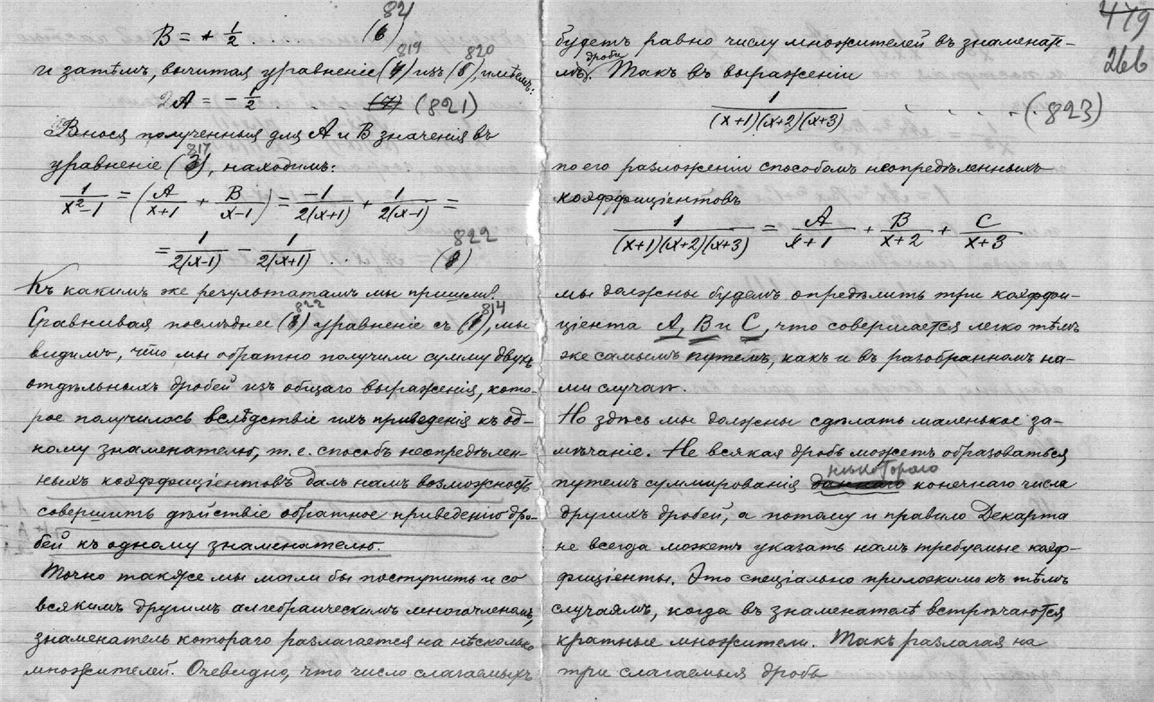 B = + 1/2 . . . . . (6) 821
и затѣмъ, вычитая уравненіе (4) 819 изъ (5) 820, имѣемъ:
2A = - 1/2 (7) (821)
Внося полученныя для A и B значенія въ
уравненіе (3) 817, находимъ:
1/(x²-1) = (A/(x+1) + B/(x-1)) = -1/2(x+1) + 1/2(x-1) =
= 1/2(x-1) - 1/2(x+1) . . . (8) 822
Къ какимъ же результатамъ мы пришли?
Сравнивая послѣднее (8) 822 уравненіе съ (1) 814, мы
видимъ, что мы обратно получили сумму двухъ
отдѣльныхъ дробей изъ общаго выраженія, кото-
рое получилось вслѣдствіе ихъ приведенія къ од-
ному знаменателю, т.е. способъ неопредѣлен-
ныхъ коэффиціентовъ далъ намъ возможность
совершить дѣйствіе обратное приведенію дро-
бей къ одному знаменателю.
Точно также мы могли бы поступить и со
всякимъ другимъ алгебраическимъ многочленомъ,
знаменатель котораго разлагается на нѣсколько
множителей. Очевидно, что число слагаемыхъ
479
266
будетъ равно числу множителей въ знаменате-
лѣ дроби. Такъ въ выраженіи
1/(x+1)(x+2)(x+3) . . . . (823)
по его разложеніи способомъ неопредѣленныхъ
коэффиціентовъ
1/(x+1)(x+2)(x+3) = A/(x+1) + B/(x+2) + C/(x+3)
мы должны будемъ опредѣлить три коэффи-
ціента A, B и C, что совершается легко тѣмъ
же самымъ путемъ, какъ и въ разобранномъ на-
ми случаѣ.
Но здѣсь мы должны сдѣлать маленькое за-
мѣчаніе. Не всякая дробь можетъ образоваться
путемъ суммированія нѣкотораго конечнаго числа
другихъ дробей, а потому и правило Декарта
не всегда можетъ указать намъ требуемые коэф-
фиціенты. Это спеціально приложимо къ тѣмъ
случаямъ, когда въ знаменателѣ встрѣчаются
кратные множители. Такъ разлагая на
три слагаемыя дробь